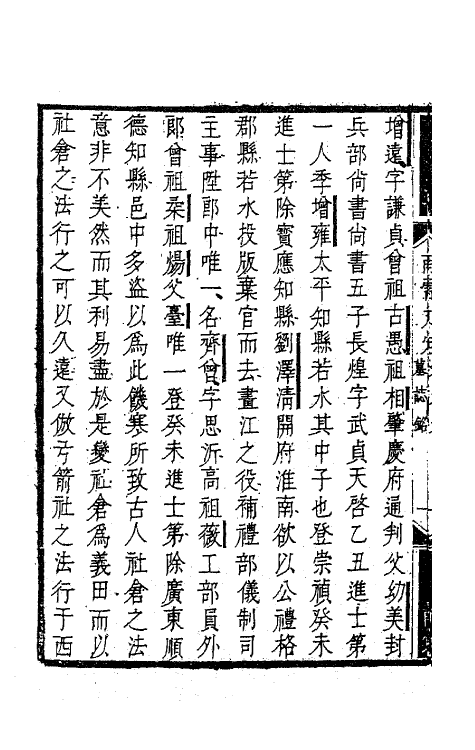 增遠字謙貞曾祖古愚祖相肇慶府通判父幼美封
兵部尚書尚書五子長煌字武貞天啓乙丑進士第
一人季增雍太平知縣若水其中子也登崇禎癸未
進士第除寳應知縣劉澤清開府淮南欲以公禮格
郡縣若水投版棄官而去畫江之役補禮部儀制司
主事陞郎中唯一名齊曾字思沂高祖薇工部員外
郎曾祖桒祖煬父臺唯一登癸未進士第除廣東順
德知縣邑中多盜以爲此饑寒所致古人社倉之法
意非不美然而其利易盡於是變社倉爲義田而以
社倉之法行之可以久遠又倣弓箭社之法行于西